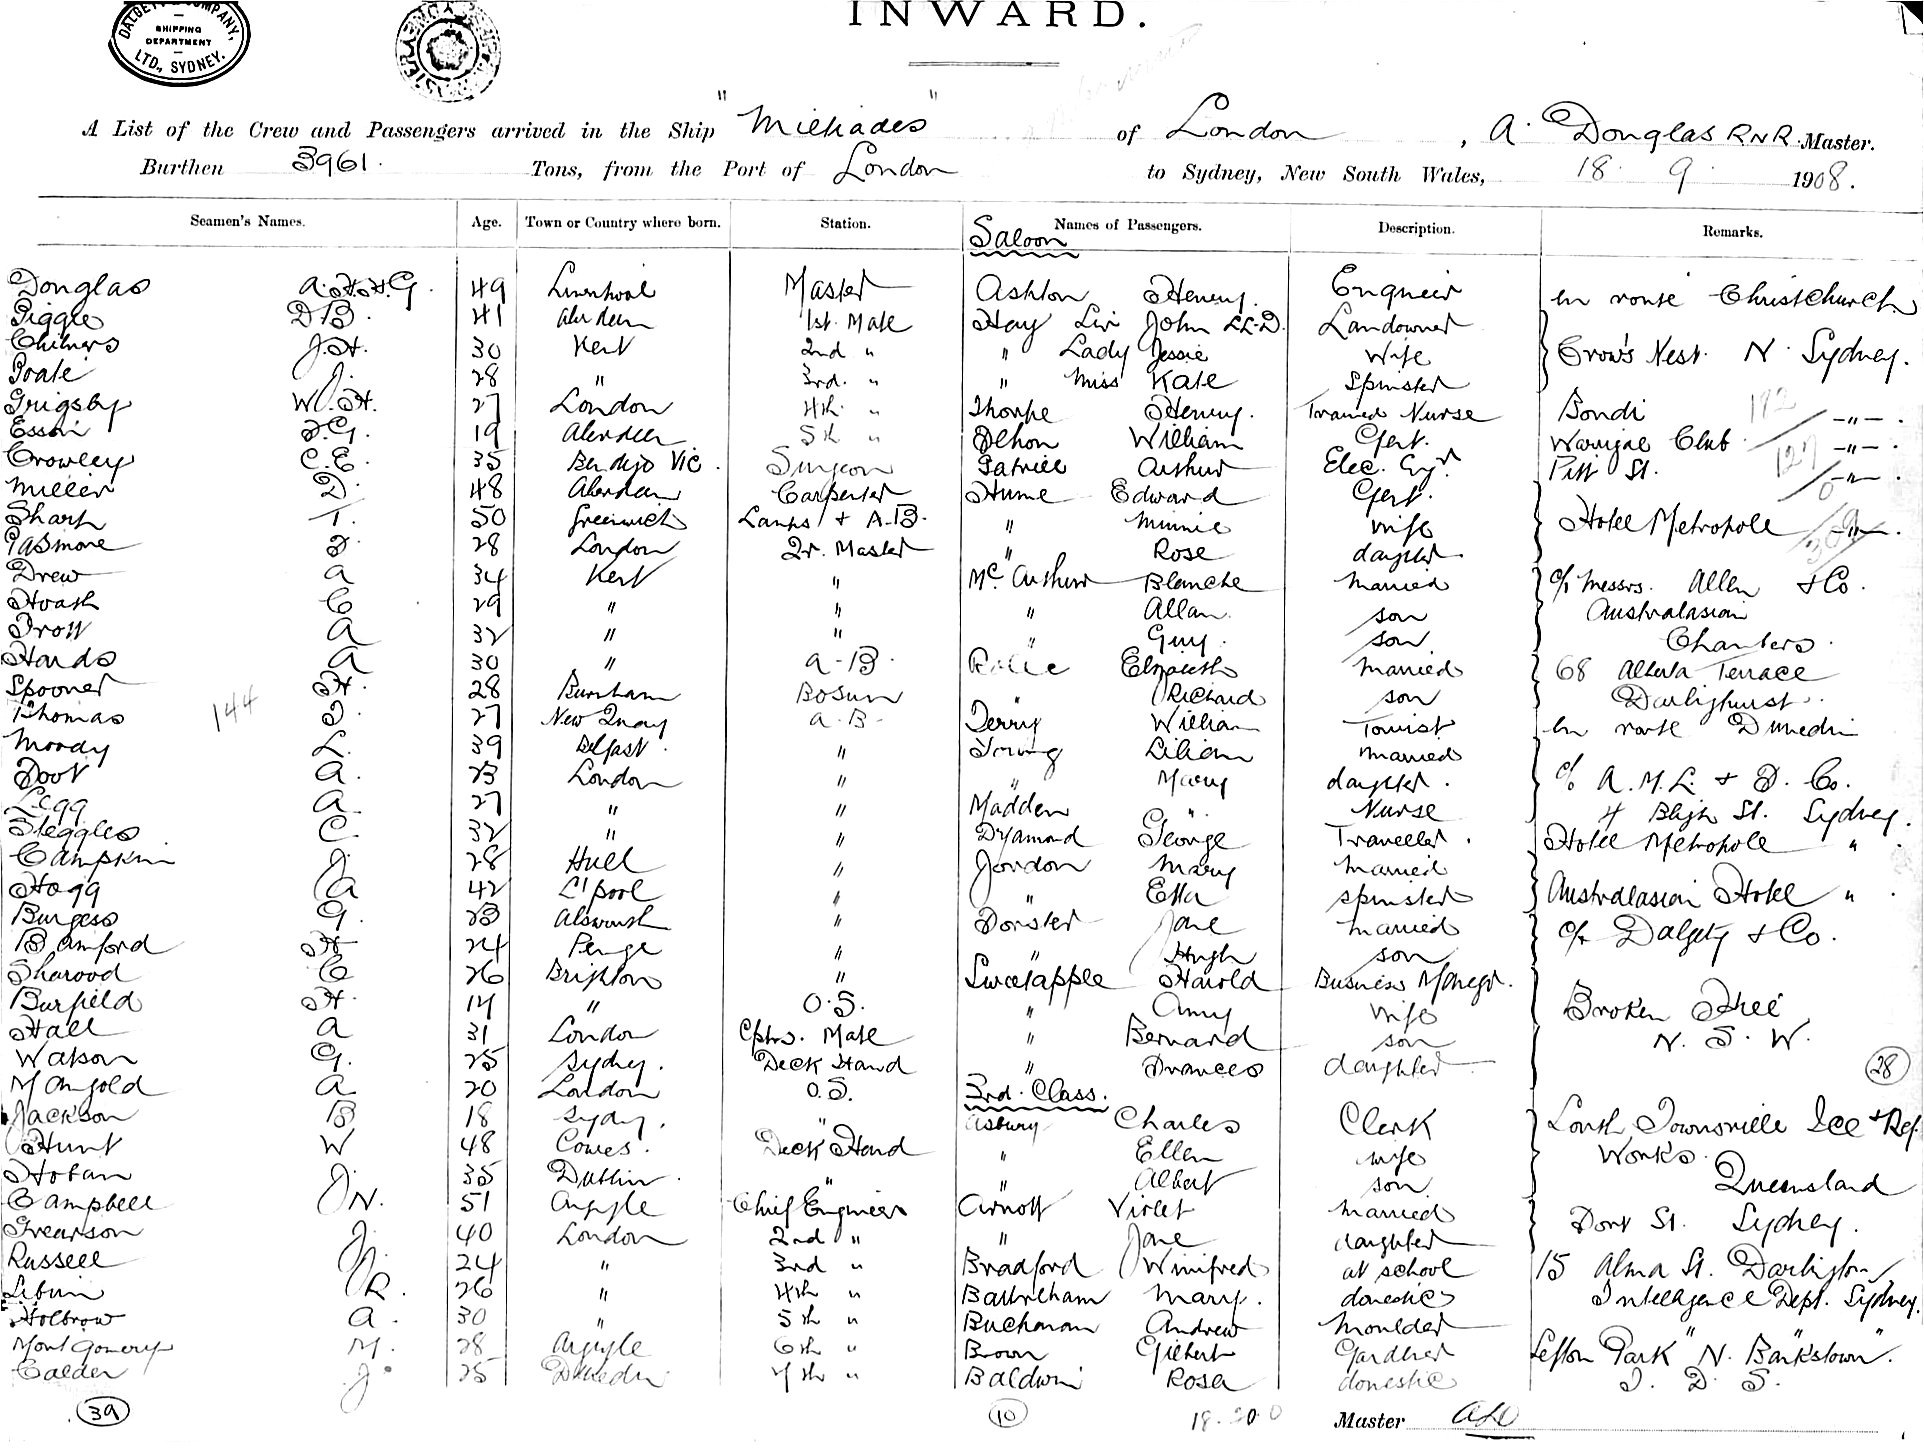 DALGETY & COMPANY, LTD., SYDNEY. SHIPPING DEPARTMENT
INWARD.
A List of the Crew and Passengers arrived in the Ship "Miltiades" of London, A. Douglas RNR. Master.
Burthen 3961. Tons, from the Port of London to Sydney, New South Wales, 18. 9. 1908.
Seamen's Names. Age. Town or Country where born. Station. Names of Passengers. Description. Remarks.
Saloon
Douglas A.H.H.G. 49 Liverpool Master Ashton Henry. Engineer En route Christchurch
Piggle D B. 41 Aberdeen 1st. Mate Hay Sir John LL.D. Landowner
Chilvers J.H. 30 Kent 2nd " " Lady Jessie Wife Crow's Nest. N. Sydney.
Poate J. 28 " 3rd. " " Miss Kate Spinster
Grigsby W.H. 27 London 4th. " Thorpe Henry. Trained Nurse Bondi 192 -"-.
19 Aberdeen 5th " William Gent. Warrigal Club -"-.
Crowley C.E. 35 Bendigo Vic. Surgeon Arthur Elec. Engr Pitt St. 127 -"-.
Miller D. 48 Aberdeen Carpenter Hume Edward Gent.
Sharp T. 50 Greenwich Lamps & A.B. " Minnie wife Hotel Metropole -"-.
Pasmore 28 London Qr. Master " Rose daughter
Drew A 34 Kent " McArthur Blanche married c/o Messrs. Allen & Co.
Hoash C 29 " " " Allan. son Australasian
Trott A 32 " " " Guy. son. Chambers.
Hards A 30 " A.B. Elspeth married 68 Alberta Terrace
Spooner H. 28 Burnham Bosun " Richard son Darlinghurst.
144
Thomas 27 New Quay A.B. Terry William Tourist En route Dunedin
Moody L. 39 Belfast. " Young Lilian married
Foot A. 23 London " " Mary daughter. c/o A.M.L. & F. Co.
Legg A. 27 " " Madden " Nurse 4 Bligh St. Sydney.
Steggles C. 32 " " Dyamond George Traveller. Hotel Metropole "
Campkin J. 28 Hull " Jordon Mary married
Hogg A 42 L'pool " " Etta spinster Australasian Hotel "
Burgess G. 23 " Jane married
Bamford H 24 Penge " " Hugh son c/o Dalgety & Co.
Sharood C 26 Brighton " Sweetapple Harold Business Manegr.
Burfield H. 17 " O.S. " Amy wife Broken Hill
Hall A 31 London Cptrs. Mate " Bernard son N. S. W.
Watson G. 25 Sydney. Deck Hand " Frances daughter
28
Mangold A 20 London O.S. 3rd. Class.
Jackson B 18 Sydny. " Asbury Charles Clerk South Townsville Ice & Ref.
Hunt W 48 Cowes. Deck Hand " Ellen wife Works.
Hoban J. 35 Dublin. " " Albert son Queensland
Campbell J N. 51 Argyle Chief Engineer Arnott Violet married
Grearson J. 40 London 2nd " " Jane daughter Dont St. Sydney.
Russell J. 24 " 3rd " Bradford Winifred at school 15 Alma St. Darlington
R. 26 " 4th " Mary. domestic Intelligence Dept. Sydney.
Holbrow A. 30 " 5th " Buchanan Andrew Moulder
Montgomery M. 28 Argyle 6th " Brown Gilbert Gardner Sefton Park "N. Bankstown".
Calder J. 25 Dunedin 7th " Baldwin Rosa domestic I. D. S.
39 10 18.20.0 Master